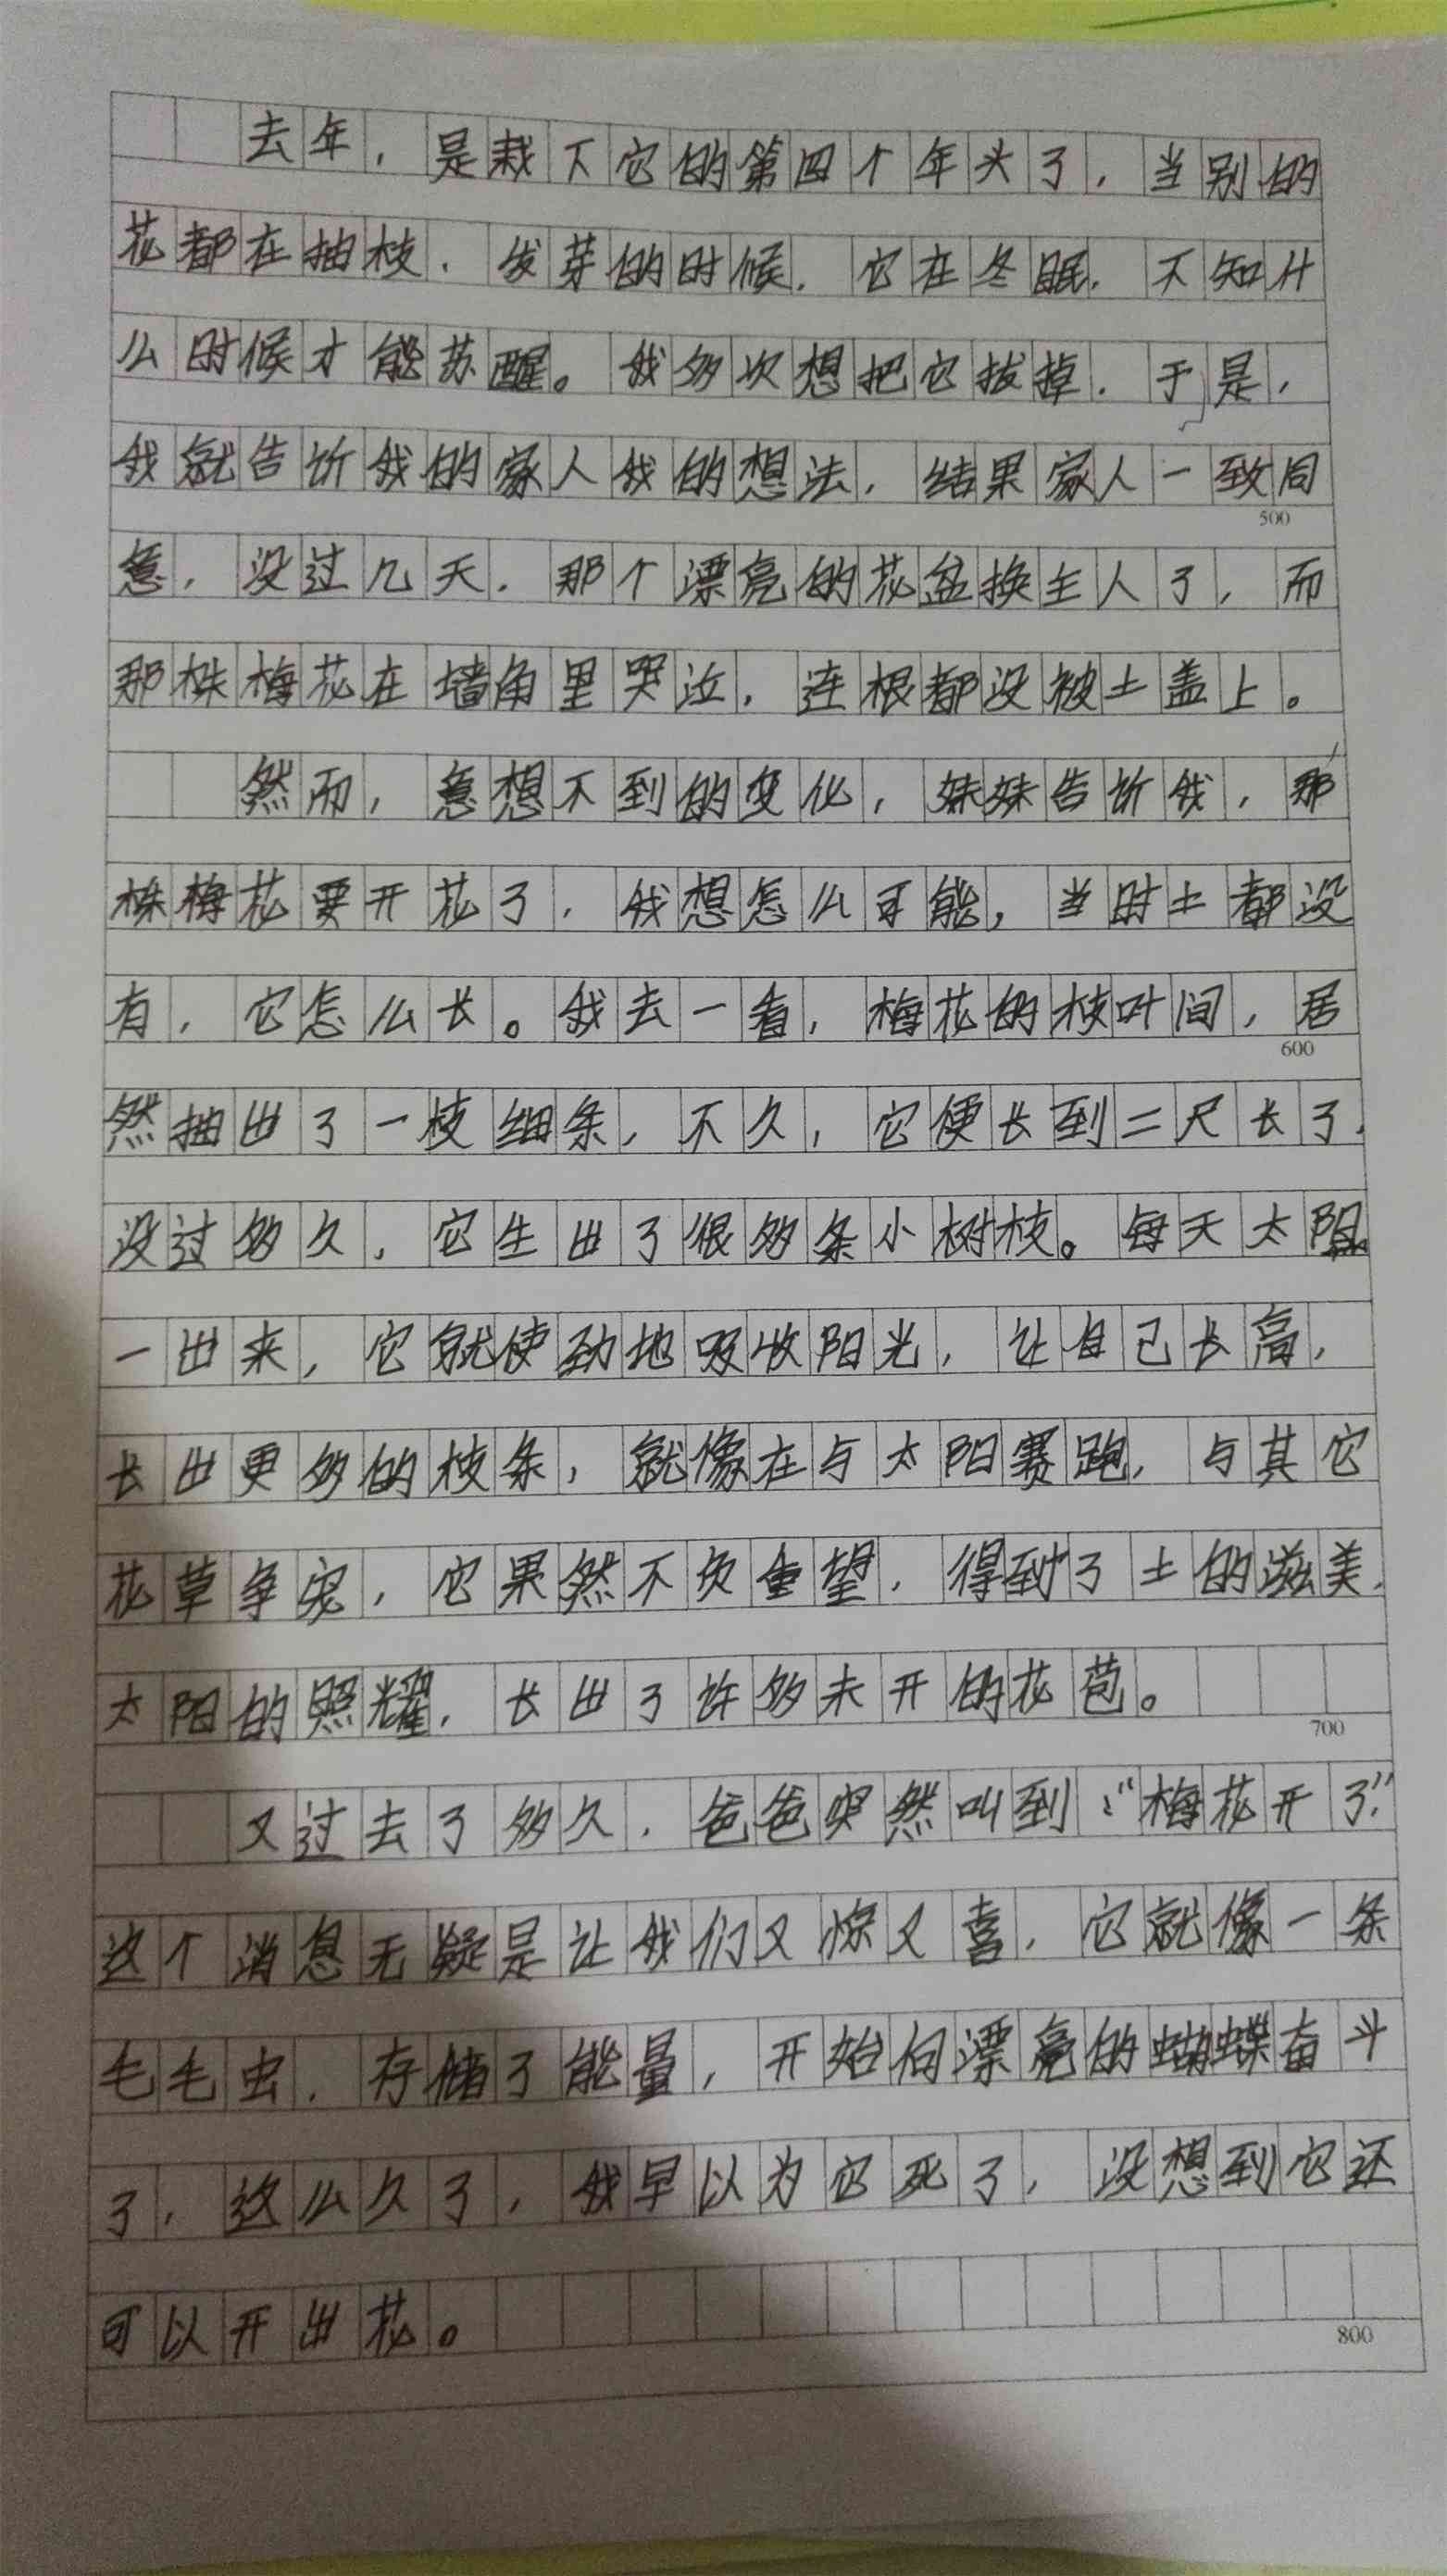 去年，是栽下它的第四个年头了，当别的
花都在抽枝、发芽的时候，它在冬眠，不知什
么时候才能苏醒。我多次想把它拔掉，于是，
我就告诉我的家人我的想法，结果家人一致同
500
意，没过几天，那个漂亮的花盆换主人了，而
那株梅花在墙角里哭泣，连根都没被土盖上。
然而，意想不到的变化，妹妹告诉我，那
株梅花要开花了，我想怎么可能，当时土都没
有，它怎么长。我去一看，梅花的枝叶间，居
600
然抽出了一枝细条，不久，它便长到二尺长了，
没过多久，它生出了很多条小树枝。每天太阳
一出来，它就使劲地吸收阳光，让自己长高，
长出更多的枝条，就像在与太阳赛跑，与其它
花草争宠，它果然不负重望，得到了土的滋美，
太阳的照耀，长出了许多未开的花苞。
700
又过去了多久，爸爸突然叫到：“梅花开了”
这个消息无疑是让我们又惊又喜，它就像一条
毛毛虫，存储了能量，开始向漂亮的蝴蝶奋斗
了，这么久了，我早以为它死了，没想到它还
可以开出花。
800